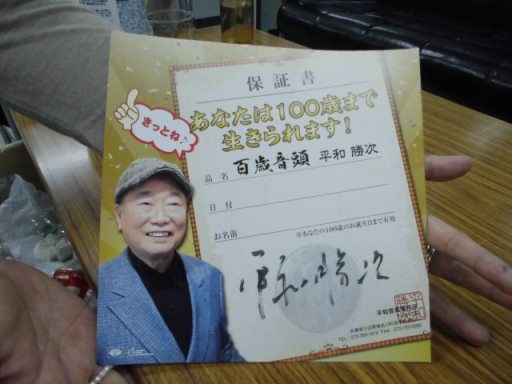 保証書
きっとね♪
あなたは100歳まで
生きられます!
品名 百歳音頭 平和 勝次
日付
お名前 ※あなたの100歳のお誕生日まで有効
平和勝次